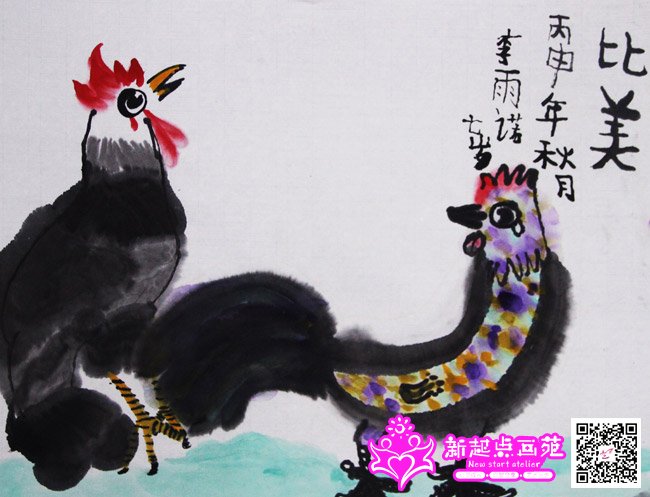 比美
丙申年秋月
李雨诺
七岁
新起点画苑
New start atelier